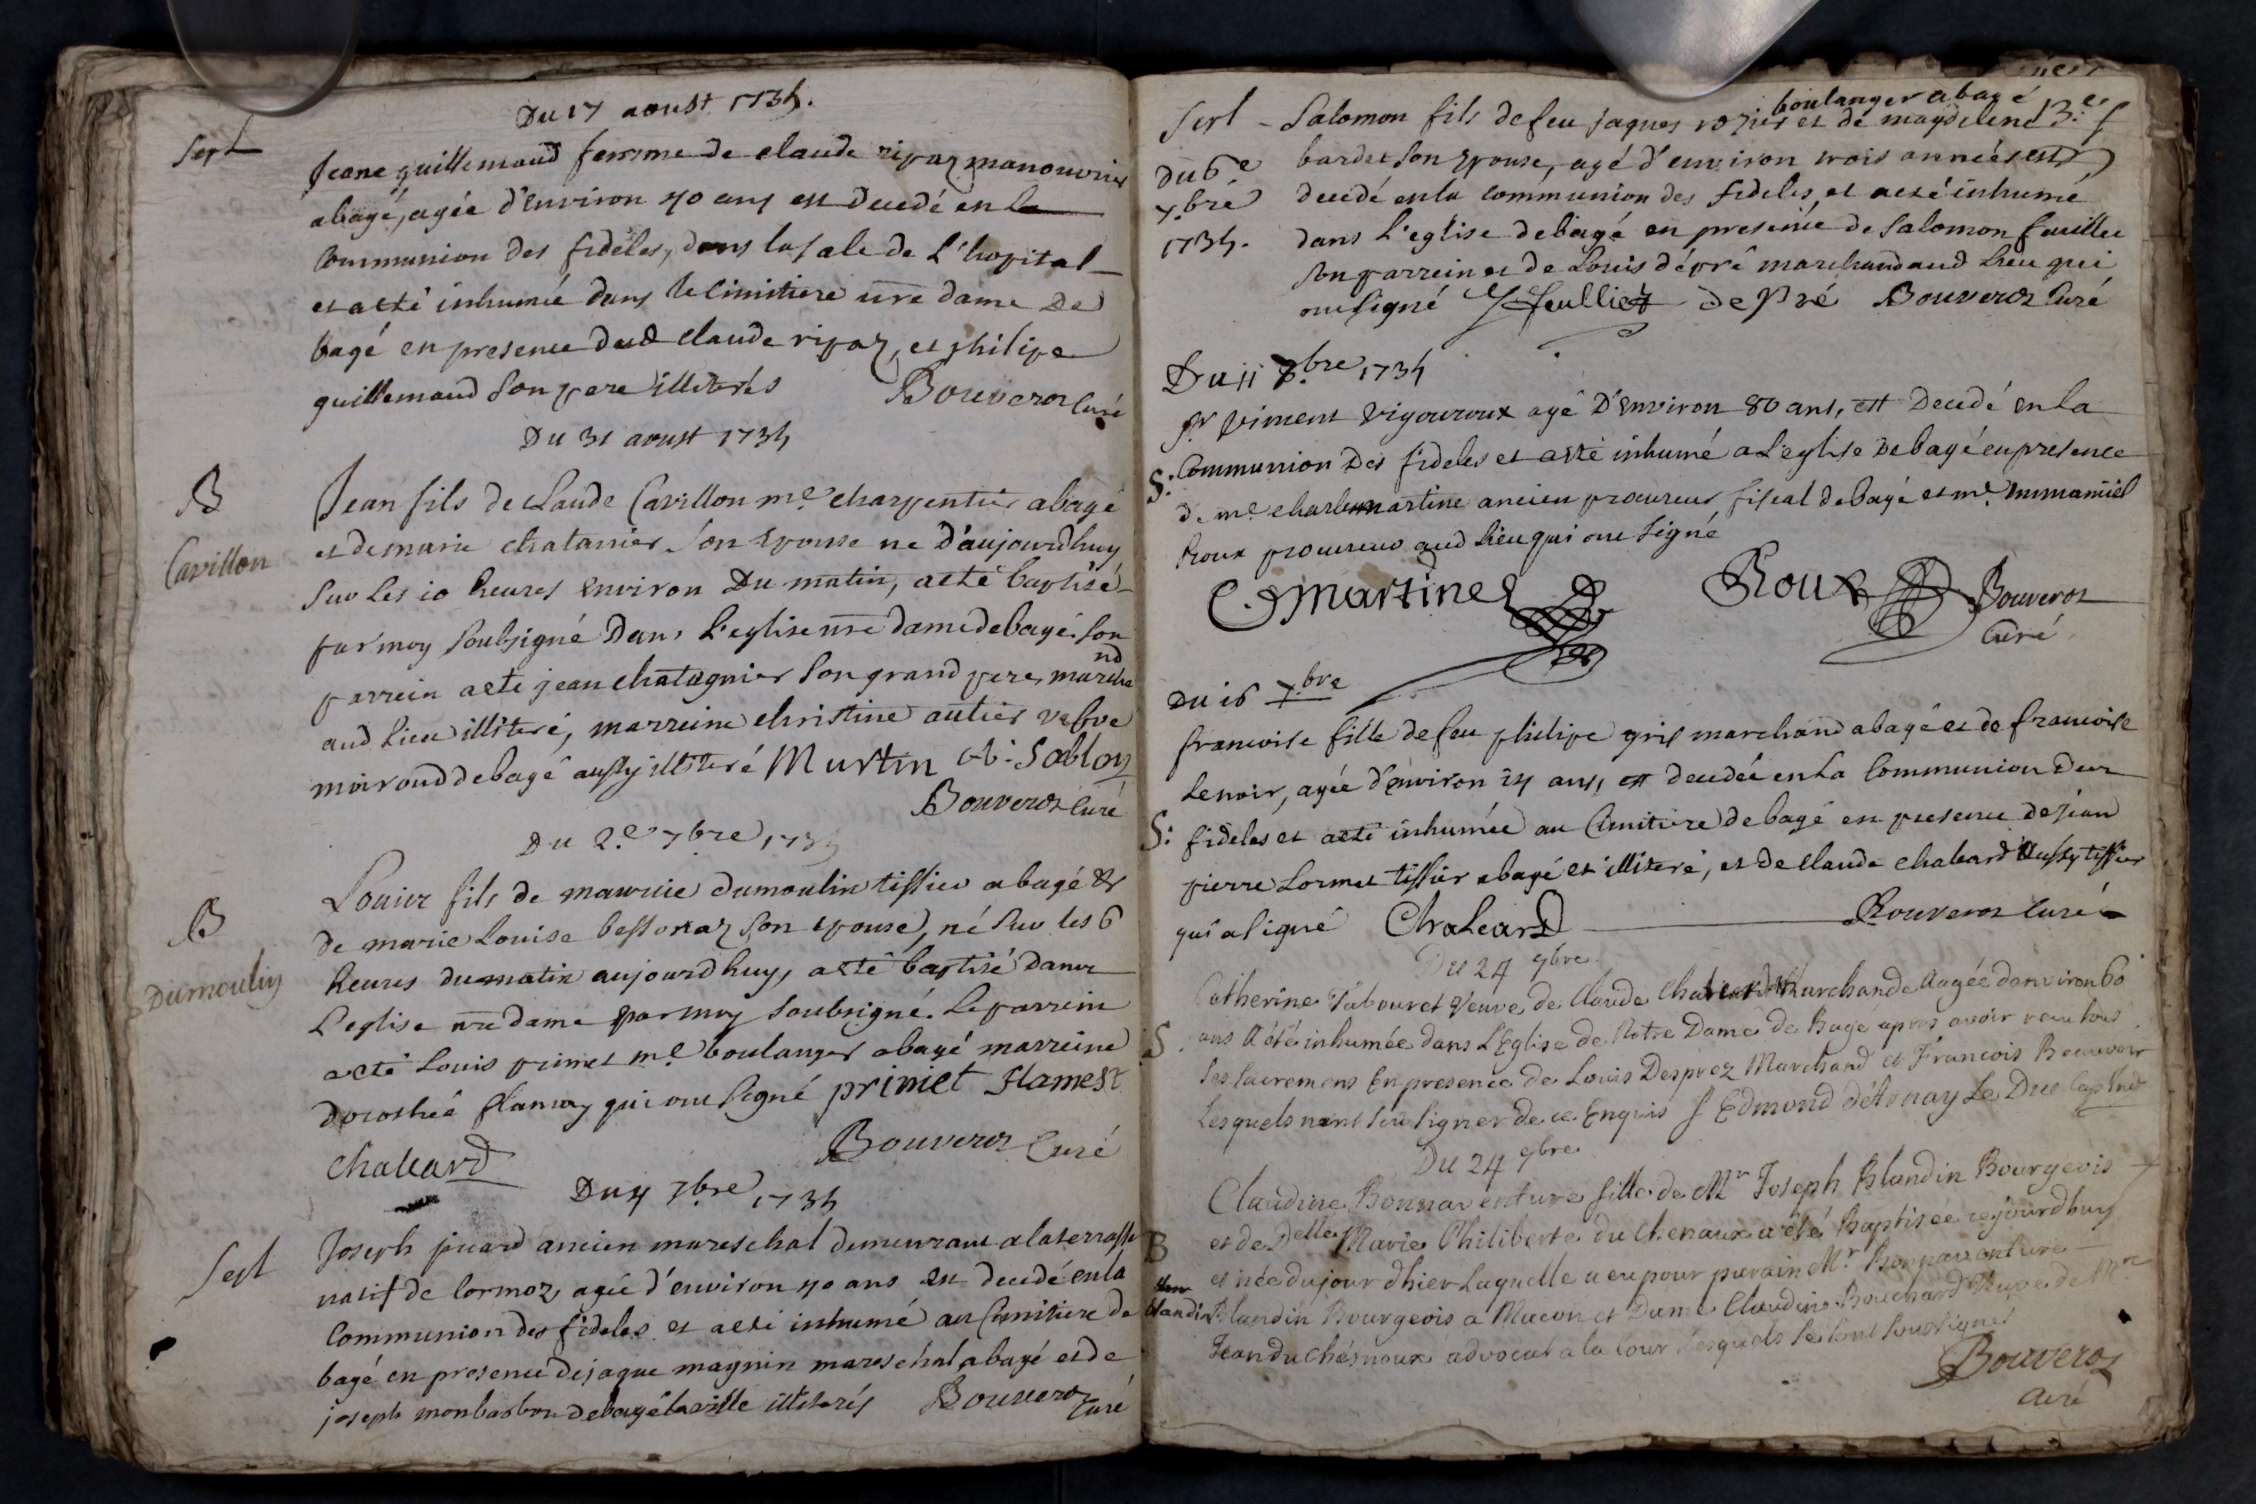 Du 17 aoust 1734.
Sept
Jeane guillemaud femme de claude ripaz manouvrier
abagé, agée d'environ 40 ans est decedé en la
Communion des fideles, dans la sale de L'hopital
et a eté inhumée dans le cimitiere nre dame de
bagé en presence dud claude ripaz, et philipe
guillemaud son pere illiterés Bouveroz Curé
Du 31 aoust 1734
B
Cavillon
Jean fils de Claude Cavillon me charpentier abagé
et de marie chatanier son epouse ne d'aujourdhuy
sur les 10 heures environ Du matin, a eté baptisé
par moy soubsigné Dans L'eglise nre dame de bagé. son
parrein a eté jean chatagnier son grand pere, marchand
aud Lieu illiteré, marreine christine autier vefve
moiroud de bagé aussy illiteré Murtin Sabloy
Bouveroz Curé
Du 2.e 7bre 1734
B
Dumoulin
Louis fils de mauricie dumoulin tissier abagé et
de marie Louise bessonaz son epouse, né sur les 6
heures du matin aujourdhuy, a eté baptisé dans
L'eglise nre dame par moy soubsigné. Le parrein
a eté Louis primet me boulanger abagé marreine
dorothée flamez qui ont signé primet Hamest
Bouveroz Curé
Chaleard
Du 4 7bre 1734
Sept
Joseph picard ancien mareschal demeurant a laterrasse
natif de lormoz, agée d'environ 40 ans est decedé en la
Communion des fideles et a eté inhumé au Cimitiere de
bagé en presence de jaque magnin mareschal abagé et de
joseph monbarbon de bagé laville illiterés Bouveroz Curé
boulanger abagé
Sept Salomon fils de feu jaques rozier et de maydelene
Du 6e
7.bre
1734.
bardet son epouse, agé d'environ trois années est
decedé en la communion des fideles, et a eté inhumé
dans L'eglise de bagé en presence de Salomon feuillet
son parrein et de Louis dépré marchand aud Lieu qui
ont signé S feulliet de pré Bouveroz Curé
Du 11 7.bre 1734
Sr Vincent Vigouroux agé D'environ 80 ans, est Decedé en La
S: Communion Des fideles et a eté inhumé a L'eglise de bagé en presence
de me charle martine ancien procureur fiscal de bagé et me Emmanuel
Roux procureur aud Lieu qui ont signé
C. Martine Roux Bouveroz
Curé
Du 16 7bre
francoise fille de feu philipe gris marchand abagé et de francoise
Lenoir, agée d'environ 24 ans, est decedée en La Communion des
S: fideles et a eté inhumée au Cimitiere de bagé en presence de jean
pierre Lormet tissier abagé et illiteré, et de Claude chaleard Aussy tissier
qui a signé Chaleard Bouveroz Curé
Du 24 9bre
Catherine Tabouret Veuve de Claude Chaleard Marchande Aagée denviron 60
S ans A été inhumée dans L'Eglise de Notre Dame de Bagé apres avoir receu tous
Ses sacremens En presence de Louis Desprez Marchand et Francois Beauvoir
Lesquels nont sceu signer de ce Enquis f Edmond Le Duc Capind
Du 24 9bre
Claudine Bonnaventure fille de Mr Joseph Blandin Bourgeois
B et de Delle Marie Philiberte du Chenaux a eté Baptisée cejourdhuy
blandin et née du jour dhier Laquelle a eu pour parain Mr Bonnaventure
Blandin Bourgeois a Macon et Dame Claudine Bouchard Veuve de Mre
Jean du Chesnoux advocat a la Cour Lesquels se sont soussignés
Bouveroz
Curé